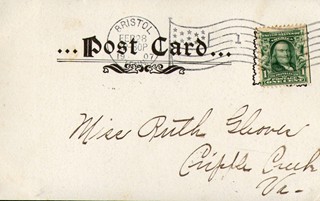 BRISTOL
FEB 28
19 07
1
...Post Card...
Miss Ruth Glover
Cripple Creek
Va-